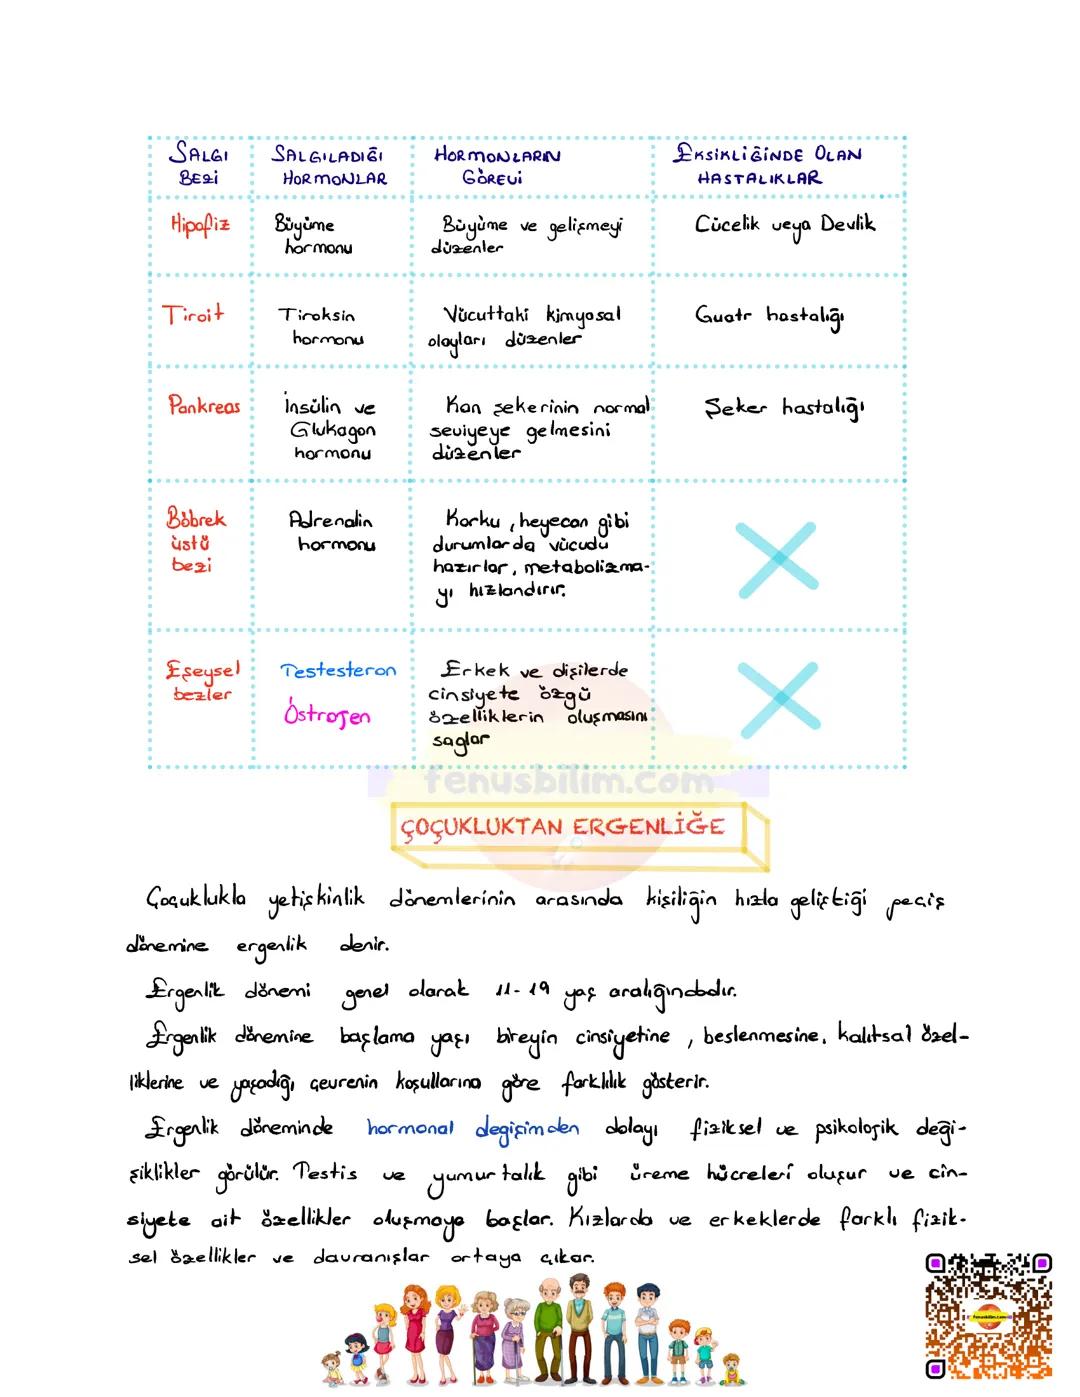 SALGI BEZİ
SALGILADIĞI HORMONLAR
HORMONLARIN GÖREVİ
EKSİKLİĞİNDE OLAN HASTALIKLAR
Hipofiz
Büyüme
hormonu
Büyüme ve gelişmeyi
düzenler
Cücelik veya Devlik
Tiroit
Tiroksin
hormonu
Vücuttaki kimyasal
olayları düzenler
Guatr hastalığı
Pankreas
İnsülin ve
Glukagon
hormonu
Kan şekerinin normal
seviyeye gelmesini
düzenler
Şeker hastalığı
Böbrek
üstü
bezi
Adrenalin
hormonu
Korku, heyecan gibi
durumlarda vücudu
hazırlar, metabolizma-
yı hızlandırır.
Eşeysel
bezler
Testesteron
Östrojen
Erkek ve dişilerde
cinsiyete özgü
özelliklerin oluşmasını
saglar
fenusbilim.com
ÇOÇUKLUKTAN ERGENLİĞE
Çoçuklukla yetişkinlik dönemlerinin arasında kişiliğin hızla geliştiği peçiş
dönemine ergenlik denir.
Ergenlik dönemi genel olarak 11-19 yaş aralığındadır.
Ergenlik dönemine başlama yaşı bireyin cinsiyetine, beslenmesine, kalıtsal özel-
liklerine ve yaşadığı çevrenin koşullarına göre farklılık gösterir.
Ergenlik döneminde hormonal degişimden dolayı fiziksel ve psikolojik deği-
şiklikler görülür. Testis ve yumurtalık gibi üreme hücreleri oluşur ve cin-
siyete ait özellikler oluşmaya başlar. Kızlarda ve erkeklerde farklı fizik-
sel özellikler ve davranışlar ortaya çıkar.
fenusbilim.com